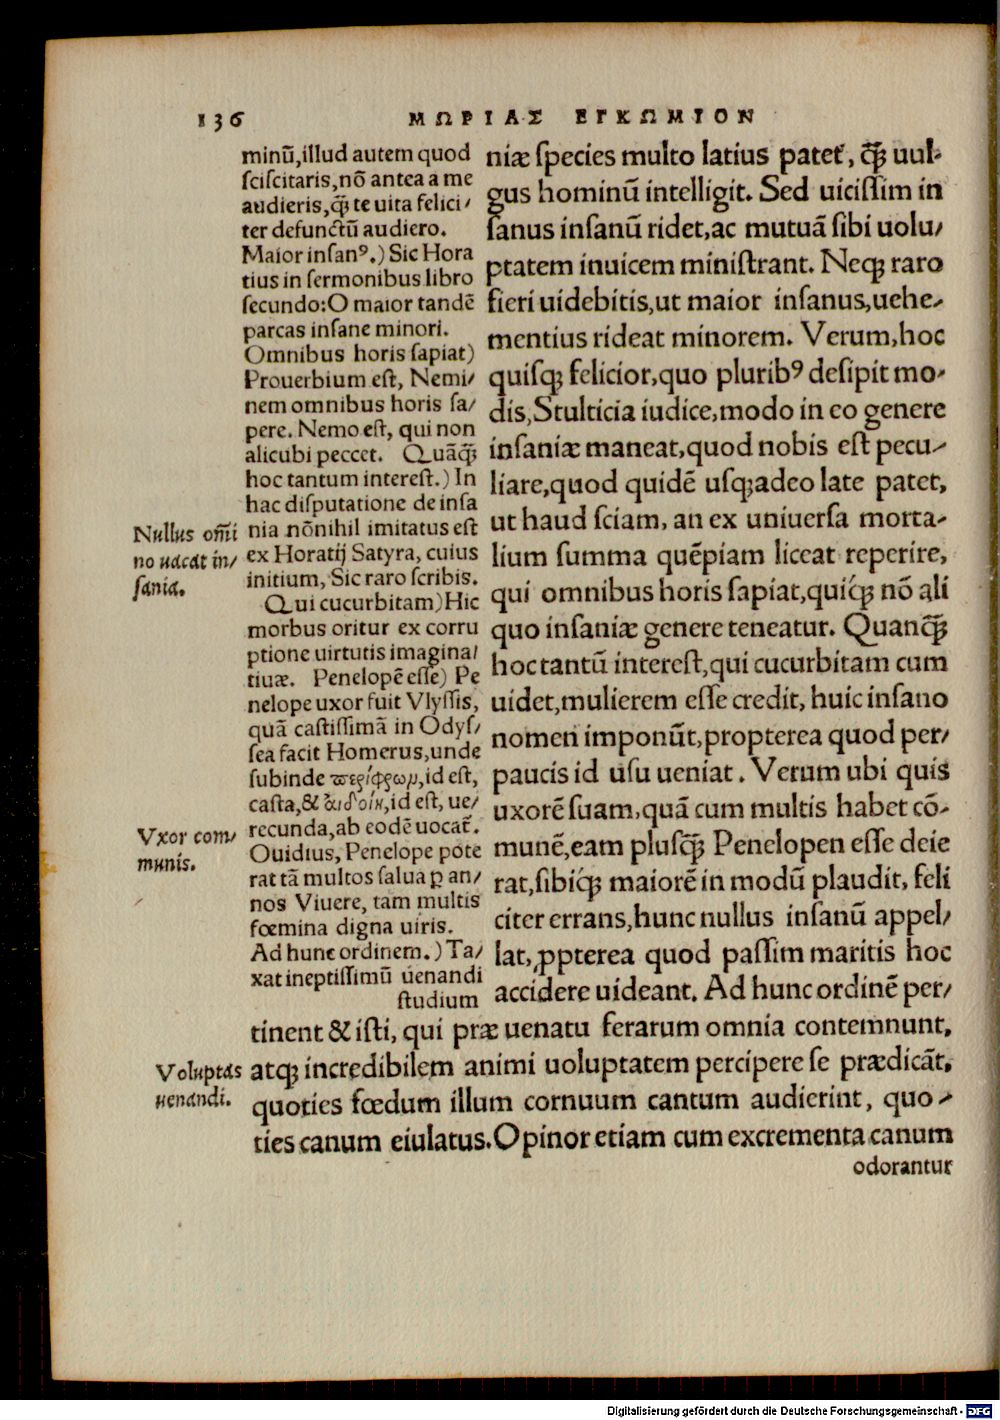 136
ΜΩΡΙΑΣ ΕΓΚΩΜΙΟΝ
minū,illud autem quod
sciscitaris,nō antea a me
audieris,ꝙ̃ te uita felici/
ter defunctū audiero.
Maior insanꝰ.) Sic Hora
tius in sermonibus libro
secundo:O maior tandē
parcas insane minori.
Omnibus horis sapiat)
Prouerbium est, Nemi/
nem omnibus horis sa/
pere. Nemo est, qui non
alicubi peccet. Quāꝙ̃
hoc tantum interest.) In
hac disputatione de insa
nia nōnihil imitatus est
ex Horatij Satyra, cuius
initium, Sic raro scribis.
Qui cucurbitam)Hic
morbus oritur ex corru
ptione uirtutis imagina/
tiuæ. Penelopē esse) Pe
nelope uxor fuit Vlyssis,
quā castissimā in Odys/
sea facit Homerus,unde
subinde περίφρων,id est,
casta,& ἀιδοίη,id est, ue/
recunda,ab eodē uocat᷑.
Ouidius, Penelope pote
rat tā multos salua ꝑ an/
nos Viuere, tam multis
fœmina digna uiris.
Ad hunc ordinem.) Ta/
xat ineptissimū uenandi
studium
Nullus om̄i
no uacat in/
sania.
Vxor com/
munis.
niæ species multo latius patet᷑, ꝙ̃ uul-
gus hominū intelligit. Sed uicissim in
sanus insanū ridet,ac mutuā sibi uolu/
ptatem inuicem ministrant. Neqꝫ raro
fieri uidebitis,ut maior insanus,uehe-
mentius rideat minorem. Verum,hoc
quisqꝫ felicior,quo pluribꝰ desipit mo-
dis,Stulticia iudice,modo in eo genere
insaniæ maneat,quod nobis est pecu-
liare,quod quidē usqꝫadeo late patet,
ut haud sciam, an ex uniuersa morta-
lium summa quēpiam liceat reperire,
qui omnibus horis sapiat,quiqꝫ nō ali
quo insaniæ genere teneatur. Quanꝙ̃
hoc tantū interest,qui cucurbitam cum
uidet,mulierem esse credit, huic insano
nomen imponūt,propterea quod per/
paucis id usu ueniat. Verum ubi quis
uxorē suam,quā cum multis habet cō-
munē,eam plusꝙ̃ Penelopen esse deie
rat,sibiqꝫ maiorē in modū plaudit, feli
citer errans,hunc nullus insanū appel/
lat,ꝓpterea quod passim maritis hoc
accidere uideant. Ad hunc ordinē per/
tinent & isti, qui præ uenatu ferarum omnia contemnunt,
atqꝫ incredibilem animi uoluptatem percipere se prædicāt,
quoties fœdum illum cornuum cantum audierint, quo-
ties canum eiulatus.Opinor etiam cum excrementa canum
odorantur
Voluptas
uenandi.
Digitalisierung gefördert durch die Deutsche Forschungsgemeinschaft - DFG